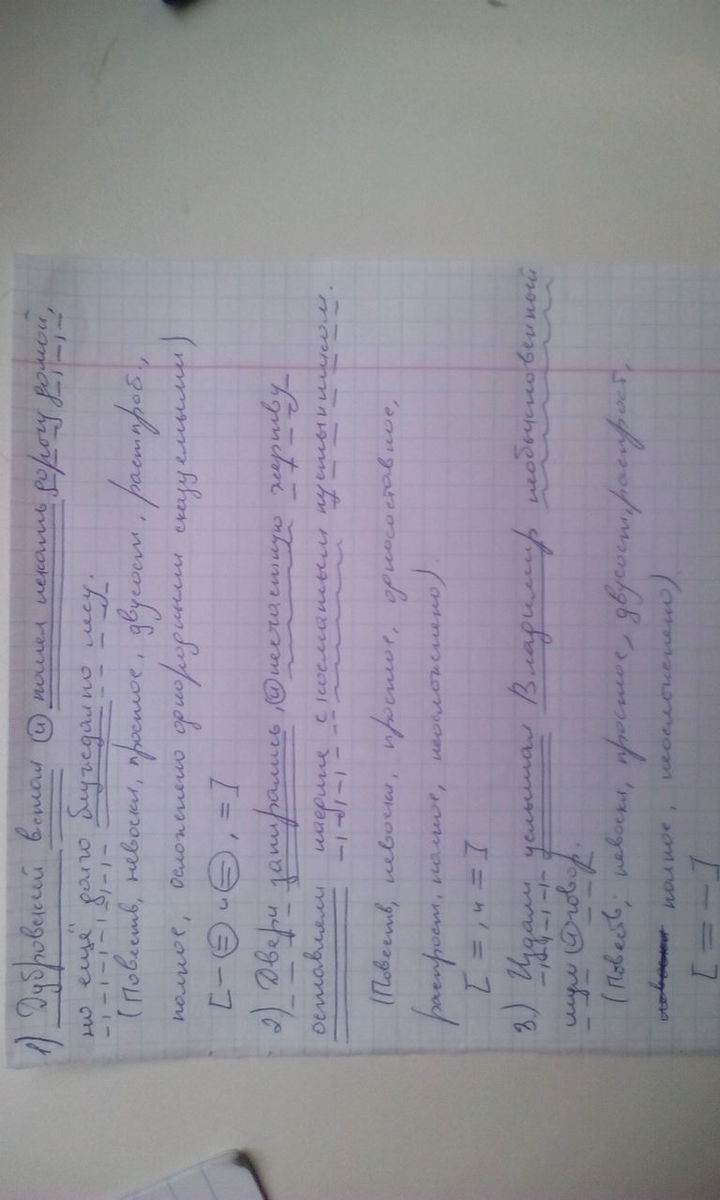 1) Дубровский встал и пошел искать дорогу домой,
но ещё долго блуждал по лесу.
(Повеств, невоскл, простое, двусост, распроб.,
полное, осложнено однородными сказуемыми)
[– (=) и (=), =]
2) Двери запирались, и несчастную жертву
оставляли наедине с косматым пустынником.
(Повеств, невоскл, простое, односоставное,
распрост, полное, неосложнено).
[=, и =]
3) Издали услышал Владимир необыкновенный
шум и говор.
(Повеств; невоскл, простое, двусост, распрост,
полное, неосложнено)
[= –]